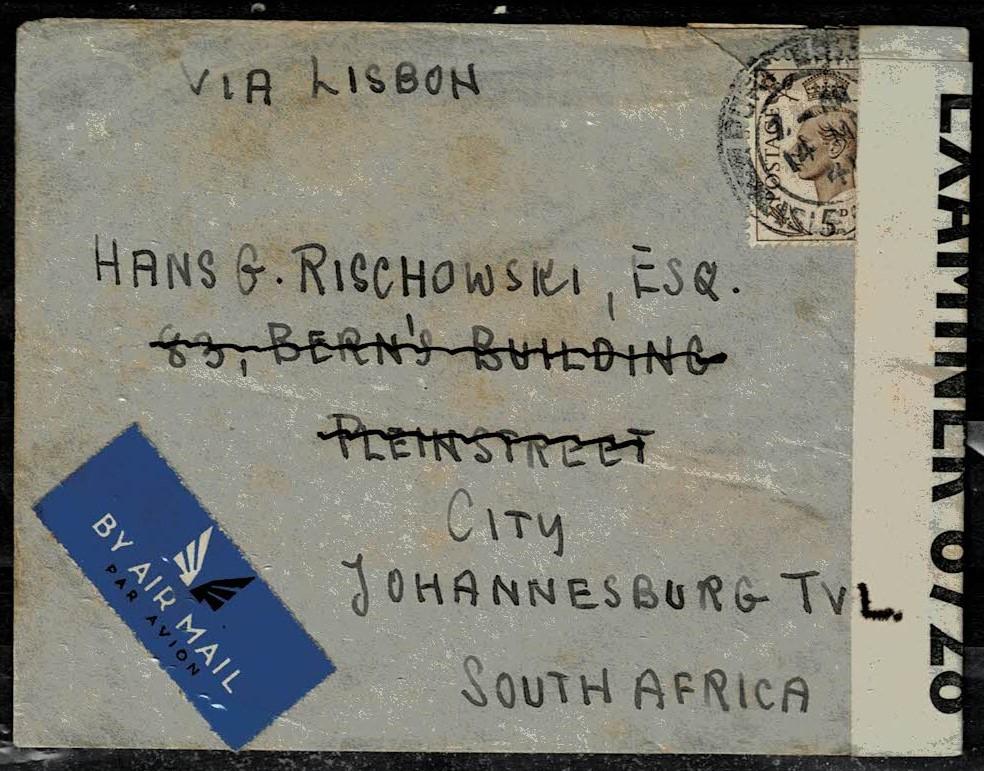 VIA LISBON
POSTAGE
14
5D
HANS G. RISCHOWSKI, ESQ.
83, BERN'S BUILDING
PLEINSTREET
CITY
JOHANNESBURG TVL.
SOUTH AFRICA
BY AIR MAIL
PAR AVION
EXAMINER 6726